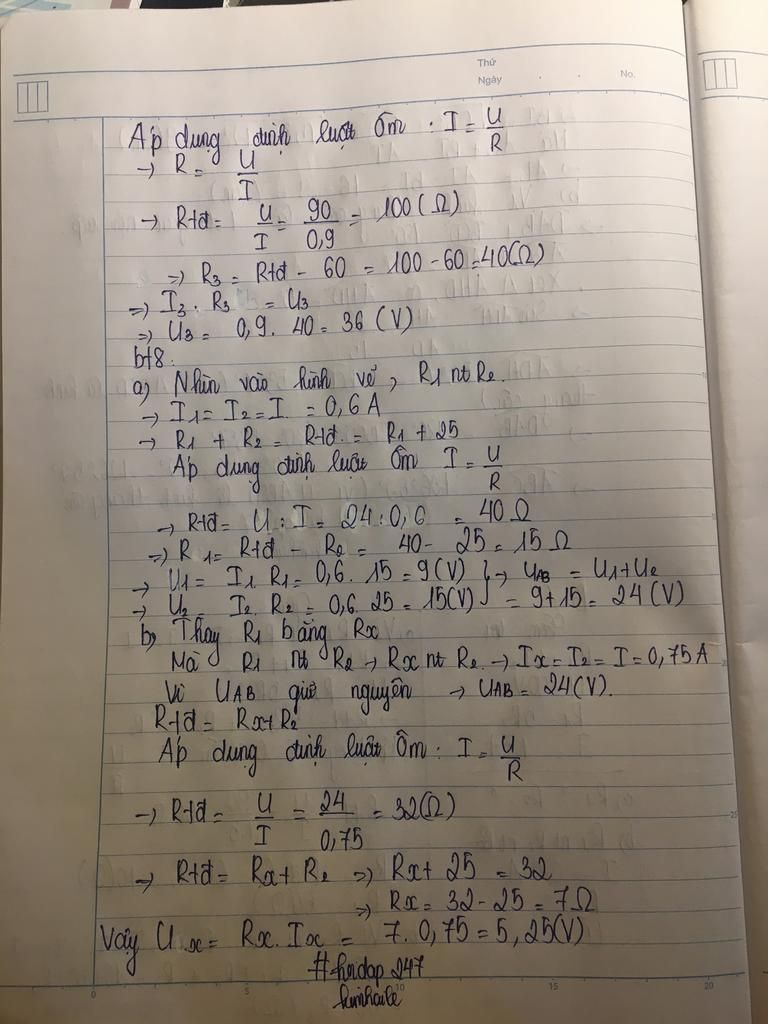 Thứ
Ngày . . No.
Áp dụng định luật Ôm : I = U/R
→ R = U/I
→ Rtđ = U/I = 90/0,9 = 100 (Ω)
⇒ R3 = Rtđ - 60 = 100 - 60 = 40(Ω)
⇒ I3 . R3 = U3
⇒ U3 = 0,9. 40 = 36 (V)
bt8.
a, Nhìn vào hình vẽ, R1 nt R2.
→ I1 = I2 = I = 0,6 A
→ R1 + R2 = Rtđ = R1 + 25
Áp dụng định luật Ôm I = U/R
→ Rtđ = U : I = 24 : 0,6 = 40 Ω
⇒ R1 = Rtđ - R2 = 40 - 25 = 15 Ω
→ U1 = I1. R1 = 0,6 . 15 = 9 (V) } → UAB = U1 + U2
→ U2 = I2. R2 = 0,6. 25 = 15(V) } = 9 + 15 = 24 (V)
b, Thay R1 bằng Rx
Mà R1 nt R2 → Rx nt R2 → Ix = I2 = I = 0,75 A
Vì UAB giữ nguyên → UAB = 24 (V).
Rtđ = Rx + R2
Áp dụng định luật Ôm : I = U/R
→ Rtđ = U/I = 24/0,75 = 32(Ω)
→ Rtđ = Rx + R2 ⇒ Rx + 25 = 32
⇒ Rx = 32 - 25 = 7Ω
Vậy Ux = Rx. Ix = 7. 0,75 = 5,25(V)
#hoidap 247
0 5 10 15 20